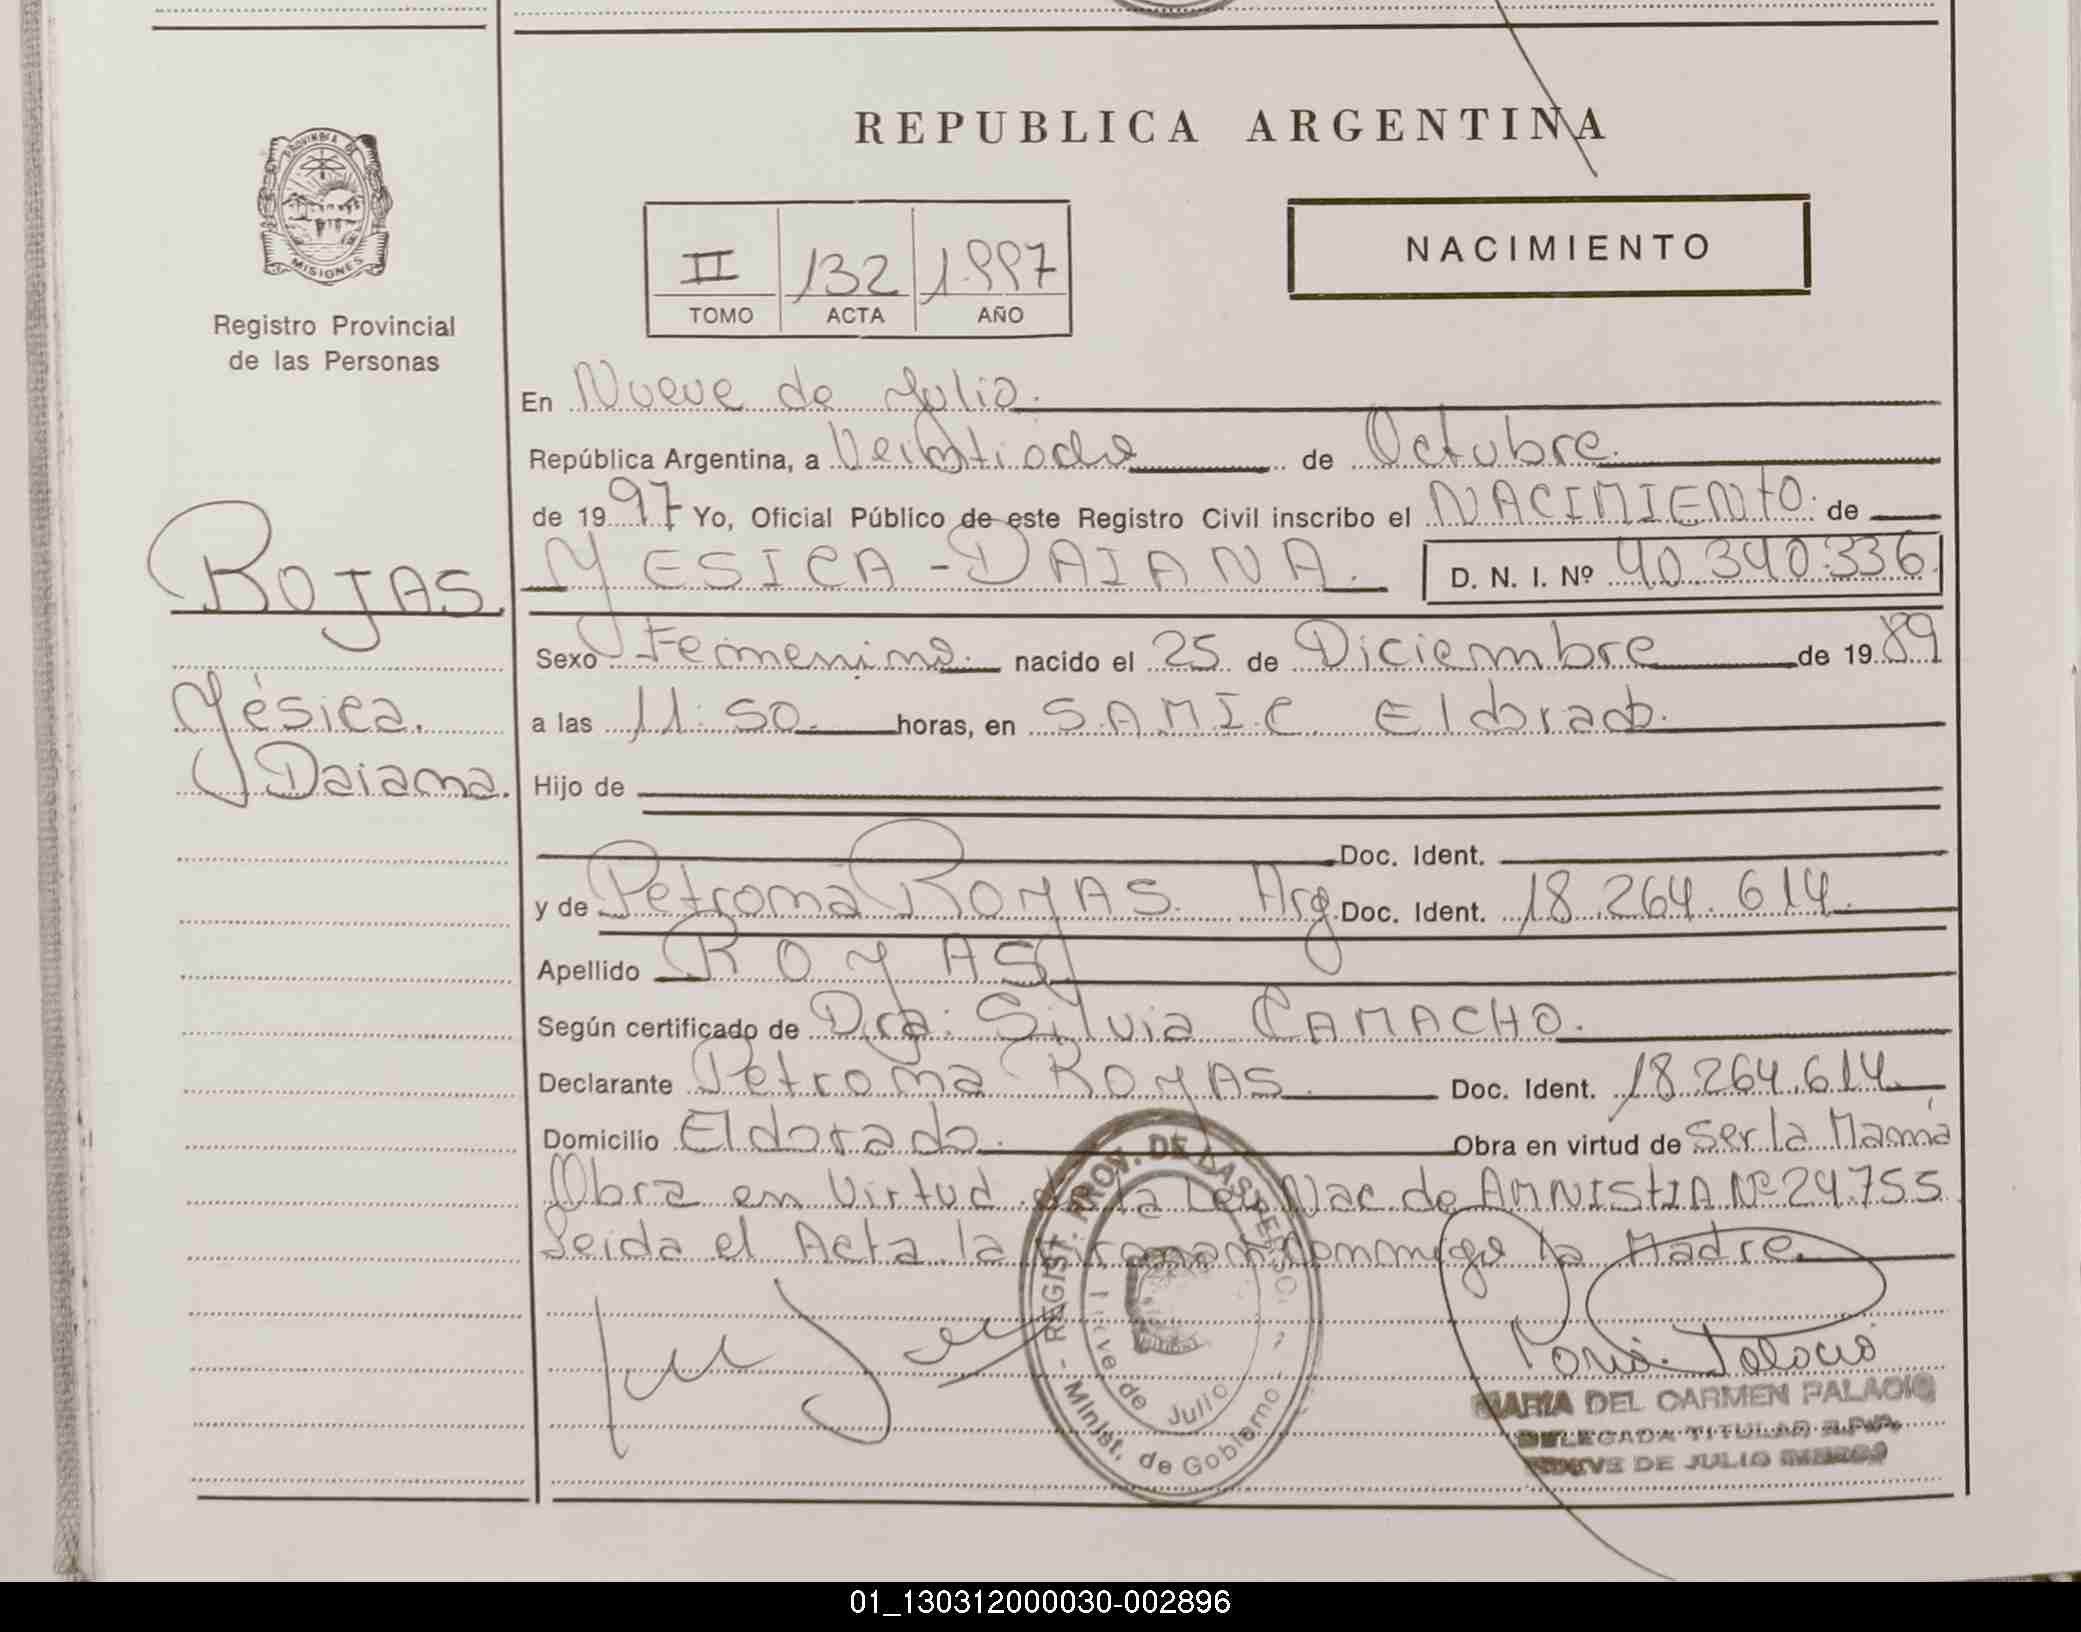 REPUBLICA ARGENTINA
PROVINCIA DE
MISIONES
Registro Provincial
de las Personas
II 132 1997
TOMO ACTA AÑO
NACIMIENTO
En Nueve de Julio.
República Argentina, a Veintiocho de Octubre.
de 1997 Yo, Oficial Público de este Registro Civil inscribo el NACIMIENTO. de
YESICA - DAIANA. D. N. I. Nº 40.340.336.
ROJAS
Sexo Femenino. nacido el 25 de Diciembre de 1989
Yésica.
a las 11:50. horas, en S.A.M.I.C. Eldorado.
Daiana.
Hijo de
Doc. Ident.
y de Petrona ROJAS. Arg. Doc. Ident. 18.264.614.
Apellido ROJAS
Según certificado de Dra: Silvia CAMACHO.
Declarante Petrona ROJAS. Doc. Ident. 18.264.614.
Domicilio Eldorado. Obra en virtud de Ser la Mamá
Obra en Virtud de la Ley Nac de AMNISTIA Nº 24755
Leida el Acta la Firman Conmigo la Madre.
REGIST. PROV. DE LAS PERSO.
Nueve de Julio
Minist. de Gobierno
María Palacio
MARIA DEL CARMEN PALACIO
DELEGADA TITULAR R.P.P.
NUEVE DE JULIO
01_130312000030-002896